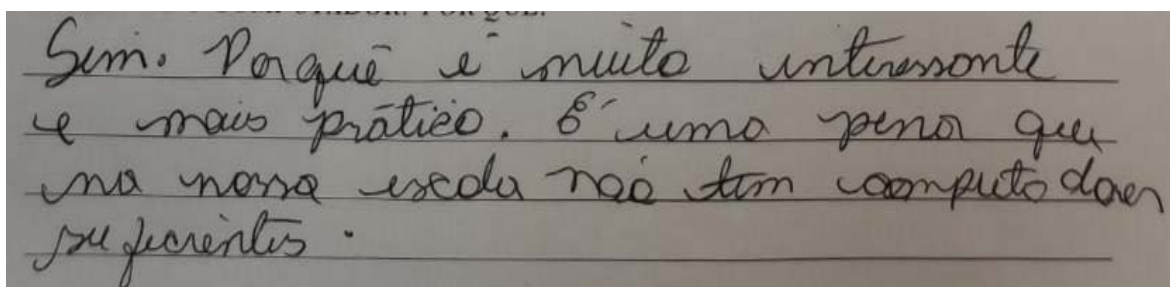 Sim. Porquê é muito interessante
e mais prático. É uma pena que
na nossa escola não tem computadores
suficientes.